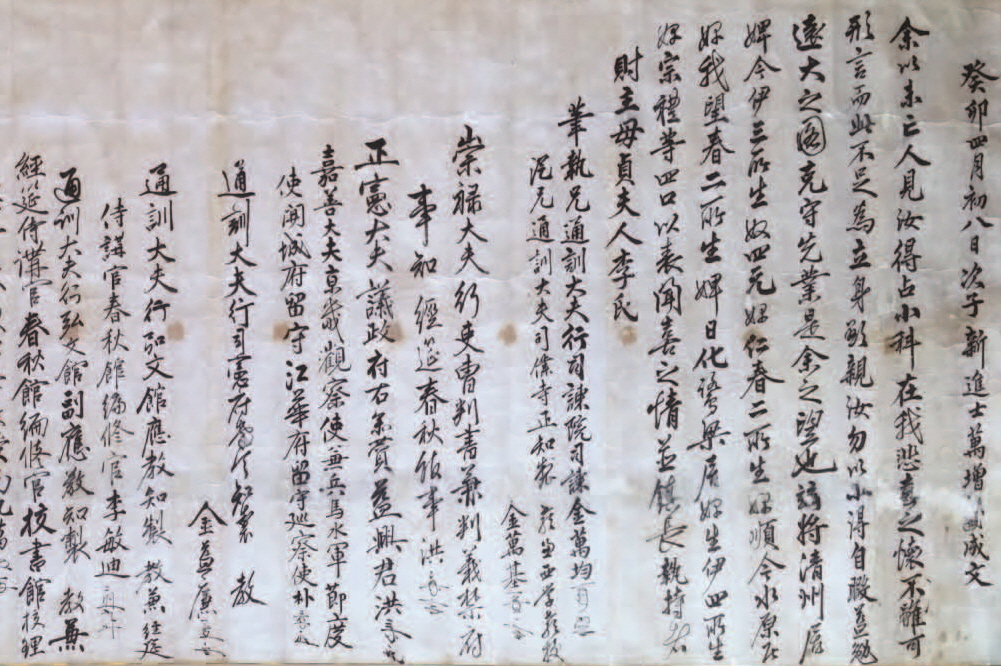 癸卯四月初八日次子新進士萬增成文
余以未亡人見汝得占小科在我悲喜之懷不難可
形言而此不足為立身顯親汝勿以小得自暇益勉
遠大之圖克守先業是余之望也玆將清州居
婢今伊三所生奴四元婢仁春二所生婢順今水原居
婢我望春二所生婢日化鷺梁居婢生伊四所生
婢宗禮等四口以表聞喜之情並鎮長執持者
財主母貞夫人李氏
筆執兄通訓大夫行司諫院司諫金萬均
通訓大夫司僕寺正知製 金萬基
崇祿大夫行吏曹判書兼判義禁府
事知 經筵春秋館事 洪
正憲大夫議政府右參贊益興君洪
嘉善大夫京畿觀察使兼兵馬水軍節度
使開城府留守江華府留守巡察使朴
通訓大夫行司憲府 知製 教
金益廉
通訓大夫行弘文館應教知製 教兼經筵
侍講官春秋館編修官李敏迪
通訓大夫行弘文館副應教知製 教兼
經筵侍講官春秋館編修官校書館校理